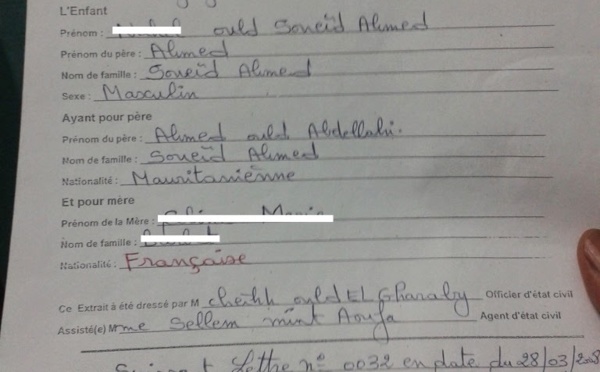 L'Enfant
Prénom : ould Soneïd Ahmed
Prénom du père : Ahmed
Nom de famille : Soneïd Ahmed
Sexe : Masculin
Ayant pour père
Prénom du père : Ahmed ould Abdellahi.
Nom de famille : Soneïd Ahmed
Nationalité : Mauritanienne
Et pour mère
Prénom de la Mère :
Nom de famille :
Nationalité : Française
Ce Extrait à été dressé par M cheikh ould EL Gharaby Officier d'état civil
Assisté(e) M me Sellem mint Agent d'état civil
Lettre n° 0032 en date du 28/03/